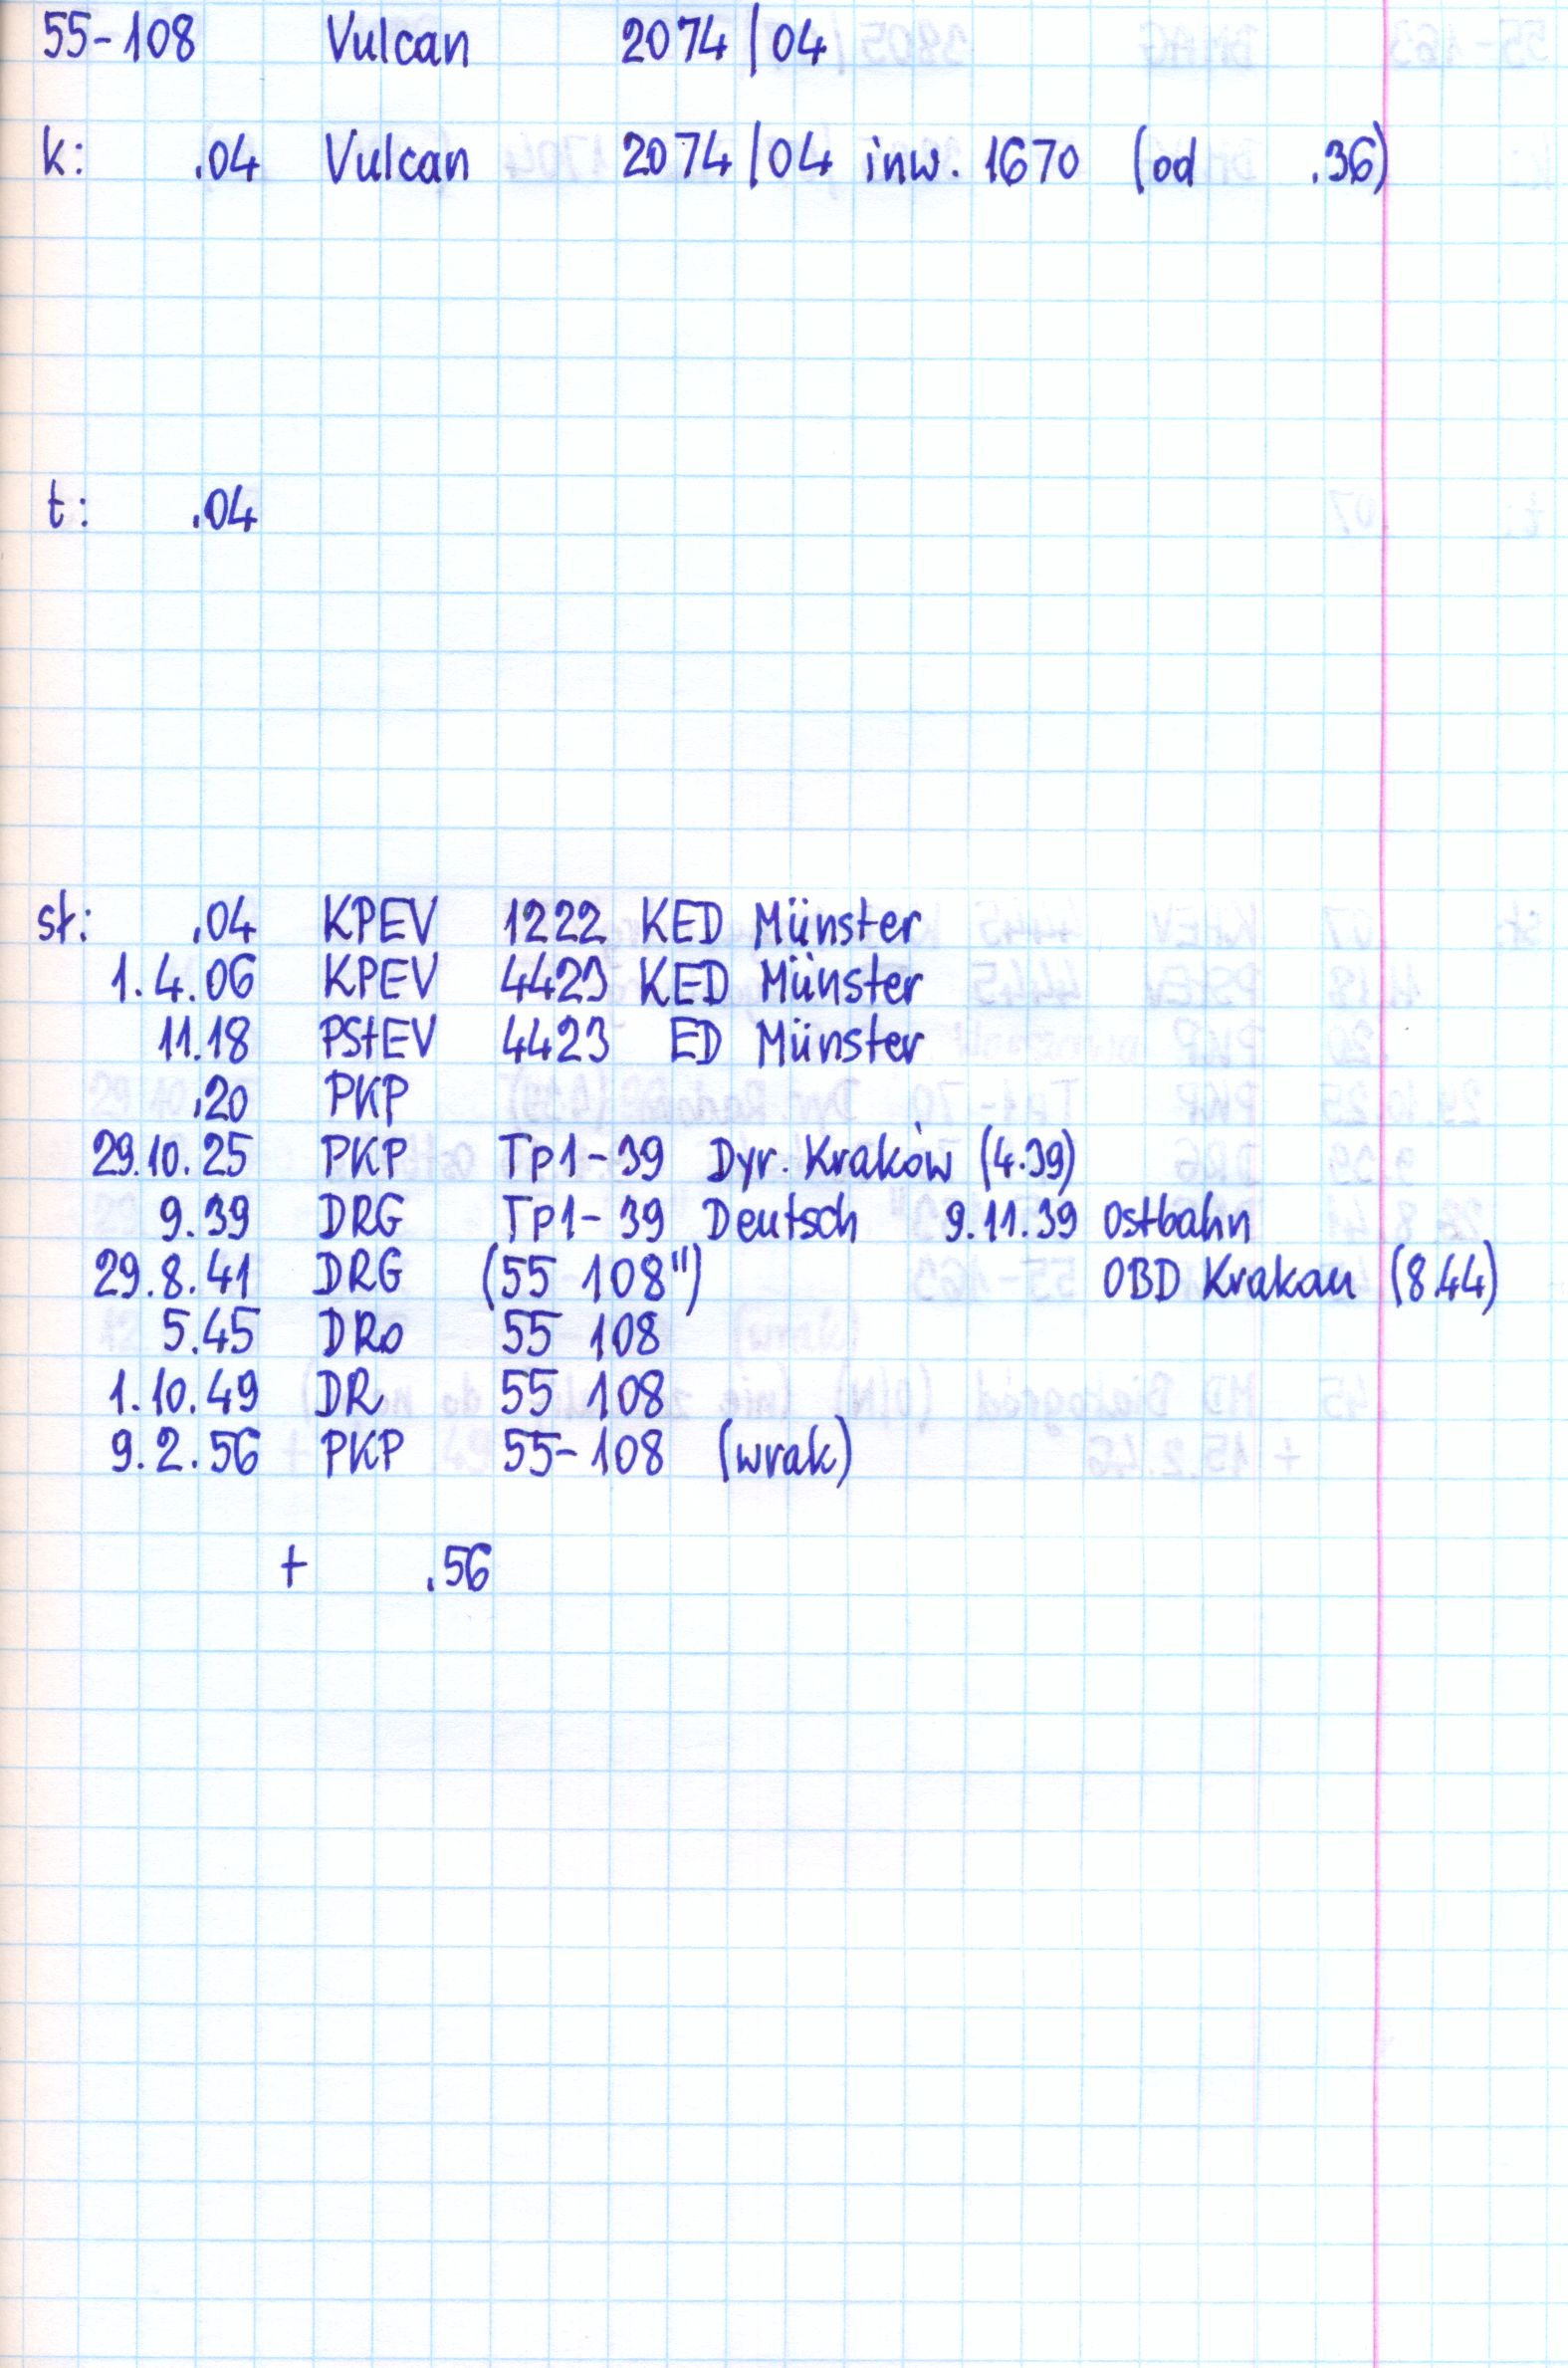 55-108 Vulcan 2074/04
k: .04 Vulcan 2074/04 inw. 1670 (od .36)
t: .04
st: .04 KPEV 1222 KED Münster
1.4.06 KPEV 4423 KED Münster
11.18 PStEV 4423 ED Münster
.20 PKP
29.10.25 PKP Tp1-39 Dyr. Kraków (4.39)
9.39 DRG Tp1-39 Deutsch 9.11.39 Ostbahn
29.8.41 DRG (55 108") OBD Krakau (8.44)
5.45 DRo 55 108
1.10.49 DR 55 108
9.2.56 PKP 55-108 (wrak)
+ .56